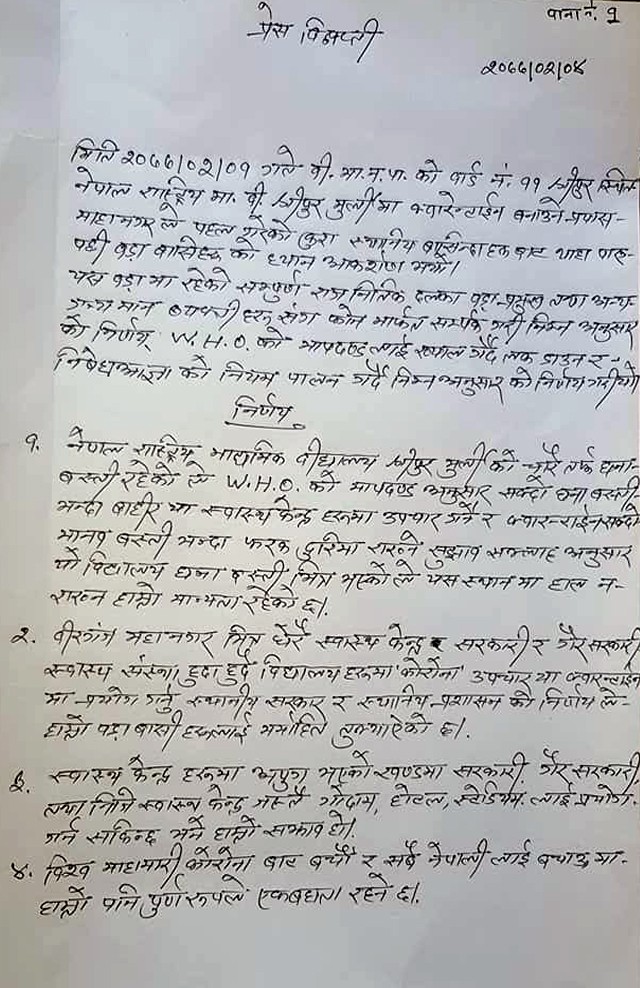 पाना नं. १
प्रेस विज्ञप्ती
२०७७/०२/०४
मिति २०७७/०२/०१ गते वी. म.न.पा. को वार्ड नं. ११ श्रीपुर स्थित
नेपाल राष्ट्रिय मा. वी. श्रीपुर मुर्ली मा क्वारेन्टाईन बनाउने प्रयास-
माहानगर ले पहल गरेको कुरा स्थानीय बासिन्दा हरु बाट थाहा पाए-
पछी वडा बासीहरु को ध्यान आकर्शण भयो।
यस वडा मा रहेको सम्पुर्ण राज नितिक दलका वडा-प्रमुख तथा अन्य-
गन्य मान्य व्यक्ती हरु संग फोन मार्फत सम्पर्क गरी निम्न अनुसार
को निर्णय W.H.O. को मापदण्ड लाई ख्याल गर्दै लक डाउन र-
निषेधआज्ञा को नियम पालन गर्दै निम्नअनुसार को निर्णय गरीयो
निर्णय
१. नेपाल राष्ट्रिय माध्यमिक वीध्यालय श्रीपुर मुर्ली को चारै तर्फ घना-
बस्ती रहेको ले W.H.O. को मापदण्ड अनुसार सक्दो घना बस्ती
भन्दा बाहीर वा स्वास्थ्य केन्द्र हरुमा उपचार गर्ने र क्वारन्टाईन सक्दो
मानव बस्ती भन्दा फरक दुरिमा राख्ने सुझाव सल्लाह अनुसार
यो विद्यालय घना बस्ती भित्र भएको ले यस स्थान मा हाल न-
राख्न हाम्रो मान्यता रहेको छ।
२. वीरगंज महानगर भित्र धेरै स्वास्थ्य केन्द्र सरकारी र गैर सरकारी
स्वास्थ्य संस्था हुदा हुदै विद्यालय हरुमा 'कोरोना' उपचार वा क्वारन्टाईन
मा प्रयोग गर्नु स्थानीय सरकार र स्थानिय प्रशासन को निर्णय ले-
हाम्रो वडा बासी हरुलाई मर्माहित तुल्याऐको छ।
३. स्वास्थ्य केन्द्र हरुमा अपुग भएको खण्डमा सरकारी, गैर सरकारी
तथा निजि स्वास्थ्य केन्द्र जस्तै गोदाम, होटल, स्टेडियम लाई प्रयोग-
गर्न सकिन्छ भने हाम्रो सुझाव हो।
४. विश्व माहामारी कोरोना बाट बचौं र सबै नेपाली लाई बचाउ मा-
हाम्रो पनि पुर्ण रुपले एकबद्धता रहने छ।